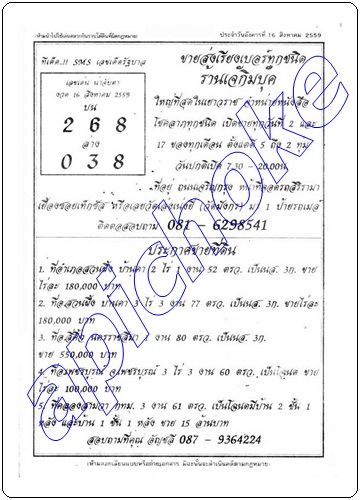 (ห้ามนำไปใช้เล่นสลากกินรวบได้ผิดกฎหมาย) ประจำวันอังคารที่ 16 สิงหาคม 2559
ทีเด็ด..!! SMS เลขเด็ดรัฐบาล
เลขเด่น นำลิบดา
งวด 16 สิงหาคม 2559
บน
2 6 8
ล่าง
0 3 8
ขายส่งเรียงเบอร์ทุกชนิด
ร้านเจ๊กิมบุ๊ค
ใหญ่ที่สุดในเยาวราช จำหน่ายหนังสือ
โชคลาภทุกชนิด เปิดขายทุกวันที่ 2 และ
17 ของทุกเดือน ตั้งแต่ตี 5 ถึง 2 ทุ่ม
วันปกติเปิด 7.30 - 20.00น.
ที่อยู่ ถนนเจริญกรุง หน้าที่จอดรถสิริรามา
เยื้องซอยเท็กซัส หรือเลยวัดเล่งเน่ยยี่ (วัดมังกร) มา 1 ป้ายรถเมล์
ติดต่อสอบถาม 081 - 6298541
ประกาศขายที่ดิน
1. ที่อำเภอสวนผึ้ง บ้านคา 2 ไร่ 1 งาน 52 ตรว. เป็นนส. 3ก. ขาย
ไร่ละ 180,000 บาท
2. ที่อ.สวนผึ้ง บ้านคา 3 ไร่ 3 งาน 77 ตรว. เป็นนส. 3ก. ขายไร่ละ
180,000 บาท
3. ที่อ.สีคิ้ว นครราชสีมา 1 งาน 80 ตรว. เป็นนส. 3ก.
ขาย 550,000 บาท
4. ที่อ.เพชรบูรณ์ จ.เพชรบูรณ์ 3 ไร่ 3 งาน 60 ตรว. เป็นโฉนด ขาย
ไร่ละ 100,000 บาท
5. ที่คลองสามวา กทม. 3 งาน 61 ตรว. เป็นโฉนดมีบ้าน 2 ชั้น 1
หลัง และบ้าน 1 ชั้น 1 หลัง ขาย 15 ล้านบาท
สอบถามที่คุณ อัญชลี 087 - 9364224
(ห้ามลอกเลียนแบบหรือถ่ายเอกสาร มิฉะนั้นจะดำเนินคดีตามกฎหมาย)
apichoke